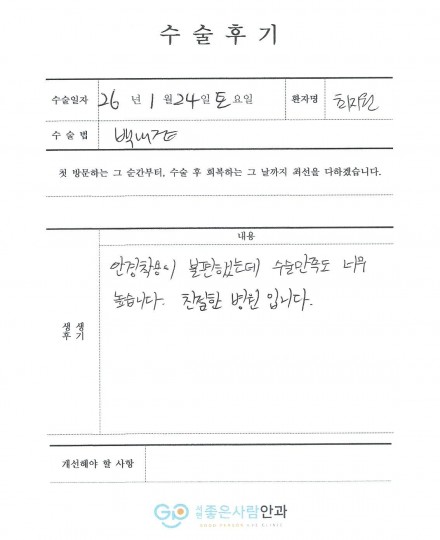 수술후기
수술일자 26 년 1 월 24일 토요일 환자명
수 술 법 백내장
첫 방문하는 그 순간부터, 수술 후 회복하는 그 날까지 최선을 다하겠습니다.
내용
생 생
후 기
안경착용시 불편했는데 수술만족도 너무
높습니다. 친절한 병원 입니다.
개선해야 할 사항
GP 좋은사람안과
GOOD PERSON EYE CLINIC